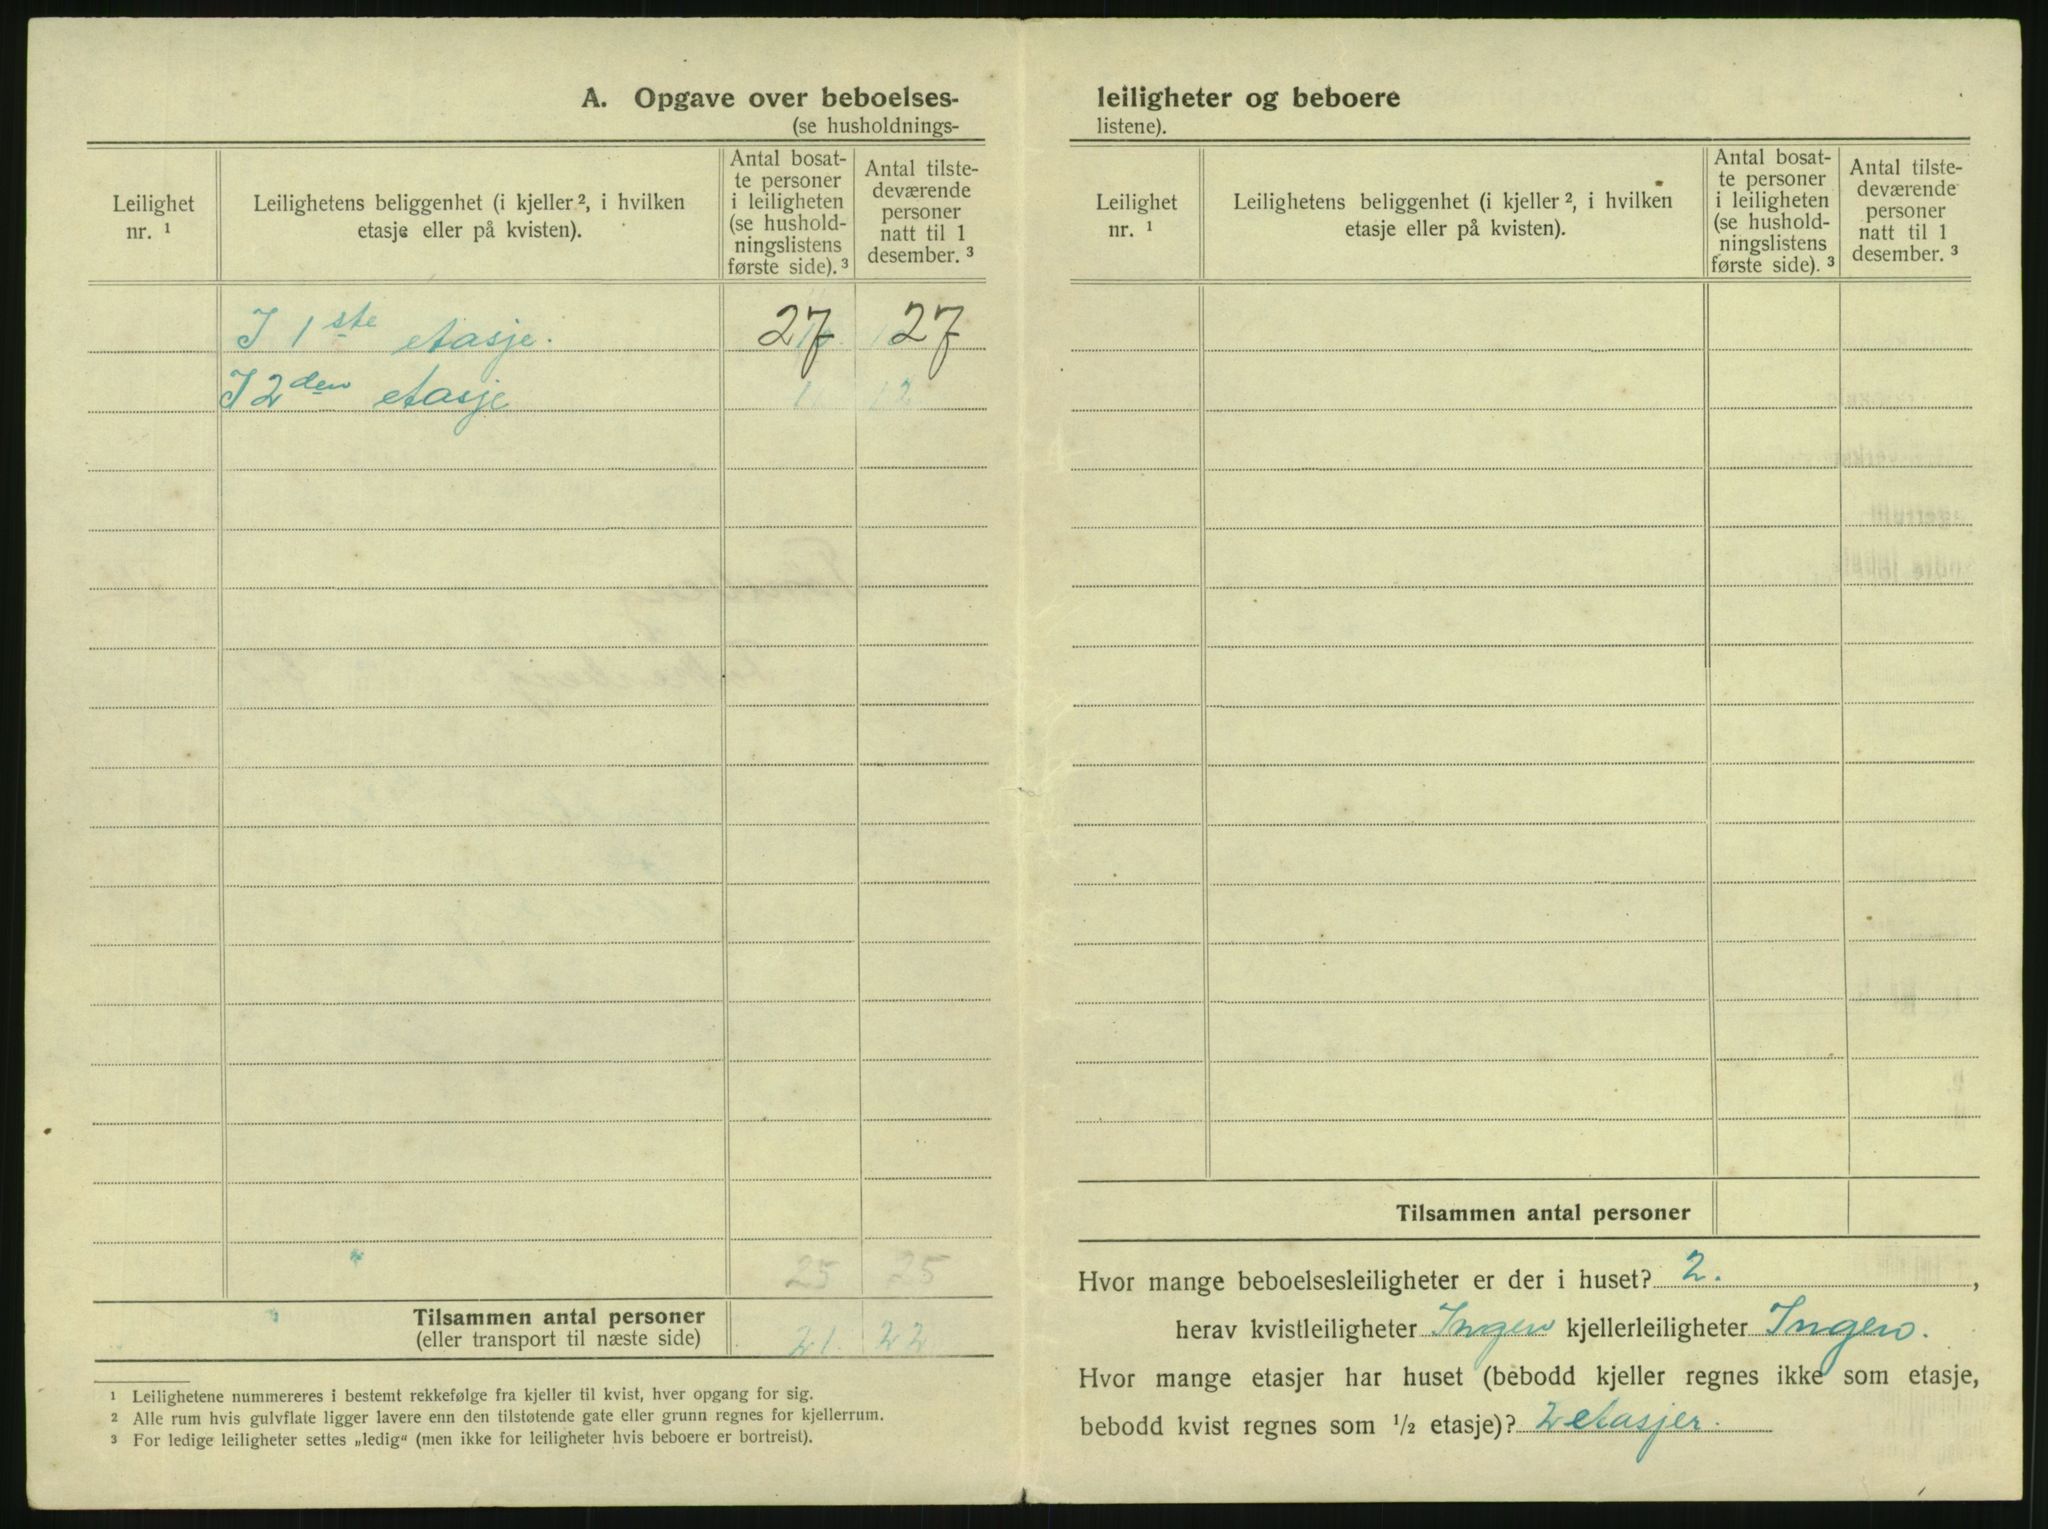 A. Opgave over beboelses-
(se husholdnings-
Leilighet nr. ¹
Leilighetens beliggenhet (i kjeller ², i hvilken etasje eller på kvisten).
Antal bosat-
te personer
i leiligheten
(se hushold-
ningslistens
første side). ³
Antal tilste-
deværende
personer
natt til 1
desember. ³
I 1ste etasje. 27 27
I 2den etasje 11 12
25 25
Tilsammen antal personer 21. 22
(eller transport til næste side)
¹ Leilighetene nummereres i bestemt rekkefølge fra kjeller til kvist, hver opgang for sig.
² Alle rum hvis gulvflate ligger lavere enn den tilstøtende gate eller grunn regnes for kjellerrum.
³ For ledige leiligheter settes „ledig“ (men ikke for leiligheter hvis beboere er bortreist).
leiligheter og beboere
listene).
Leilighet nr. ¹
Leilighetens beliggenhet (i kjeller ², i hvilken etasje eller på kvisten).
Antal bosat-
te personer
i leiligheten
(se hushold-
ningslistens
første side). ³
Antal tilste-
deværende
personer
natt til 1
desember. ³
Tilsammen antal personer
Hvor mange beboelsesleiligheter er der i huset? 2. ,
herav kvistleiligheter Ingen kjellerleiligheter Ingen.
Hvor mange etasjer har huset (bebodd kjeller regnes ikke som etasje,
bebodd kvist regnes som ½ etasje)? 2 etasjer.